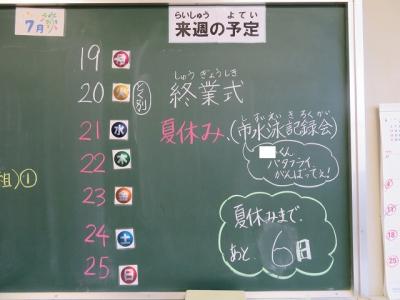 7月
らいしゅう よてい
来週の予定
19 月
20 火 とく別 しゅうぎょうしき 終業式
21 水 夏休み、(市水泳記録会)
しすいえいきろくかい
22 木
くん
バタフライ
がんばってネ!
23 金
24 土
25 日
夏休みまで
あと 6日
組)①